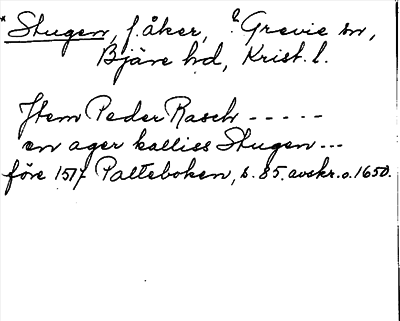 * Stugen, f. åker, ? Grevie sn,
Bjäre hd, Krist. l.
Jtem Peder Rasch - - - - -
en ager kalliss Stugen - - -
före 1517 Palteboken, s. 85. avskr. o. 1650.